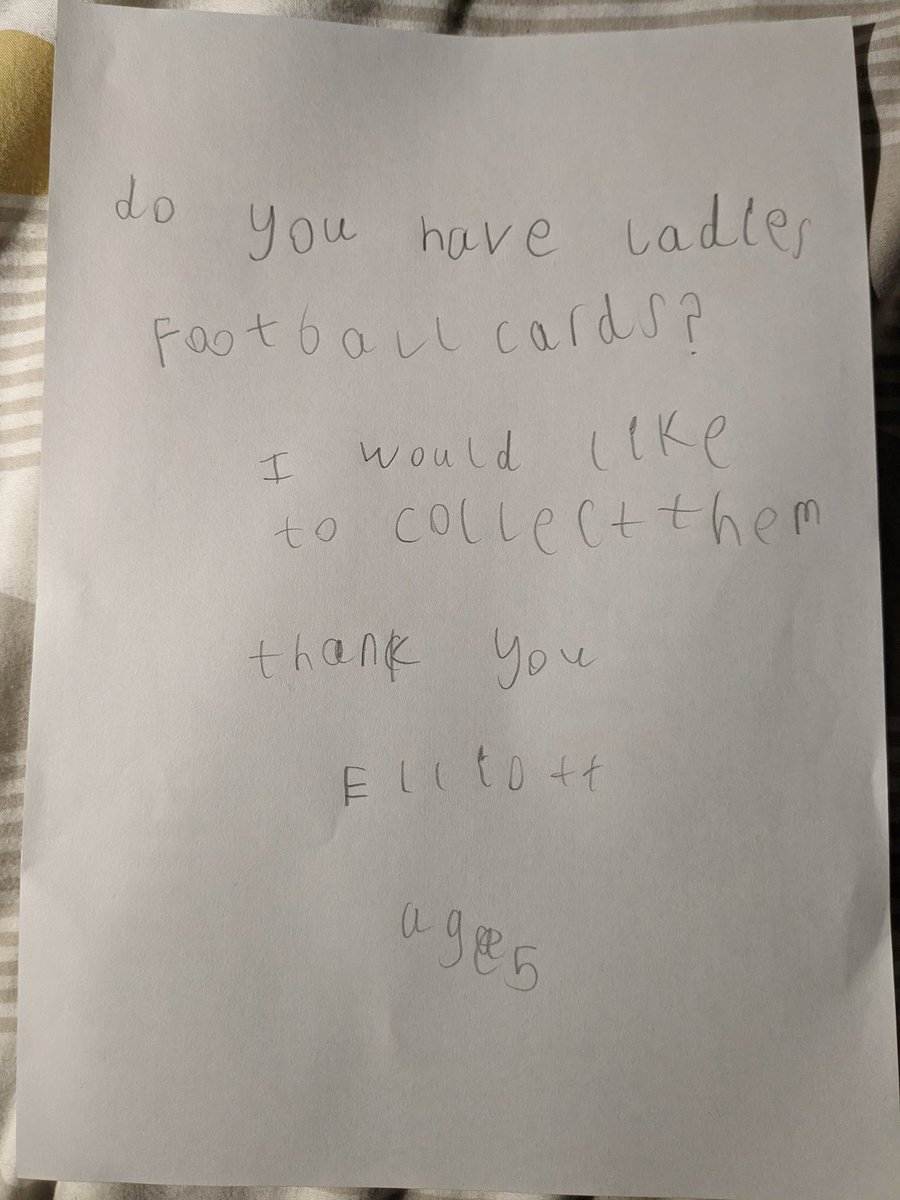 do you have ladies
Football cards?
I would like
to collect them
thank you
Elliott
age 5